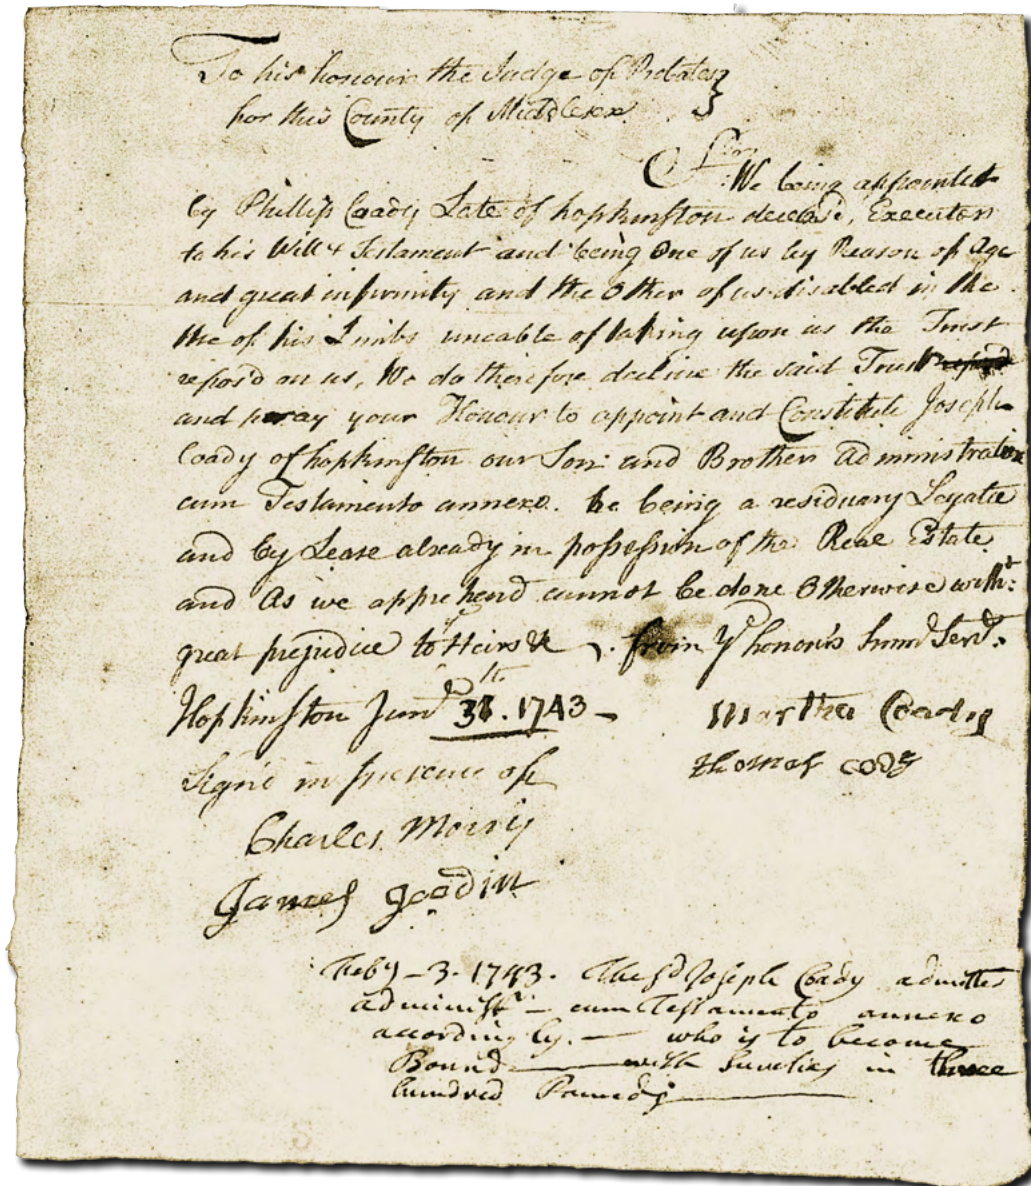 To his honour the Judge of Probates
for this County of Middlesex
Sir
We being appointed
by Phillip Coady Late of hopkinston deceasd, Executors
to his Will & Testament and being One of us by Reason of Age
and great infirmity and the Other of us disabled in the
of his Limbs uncable of taking upon us the Trust
repos'd on us, We do therefore decline the said Trust
and pray your Honour to appoint and Constitute Joseph
Coady of hopkinston our Son and Brother Administrator
cum Testamento annexo. he being a residuary Legatee
and by Lease already in possession of the Real Estate
and As we apprehend cannot be done Otherwise witht
great prejudice to Heirs &c from yr honours humb Servts
Hopkinston 1743
Martha Coady
Signd in presence of
thomas cody
Charles Morris
James goodin
Feby - 3. 1743. The sd Joseph Coady admitted
administr - cum Testamento annexo
accordingly. - who is to become
Bound with Sureties in three
hundred Pounds